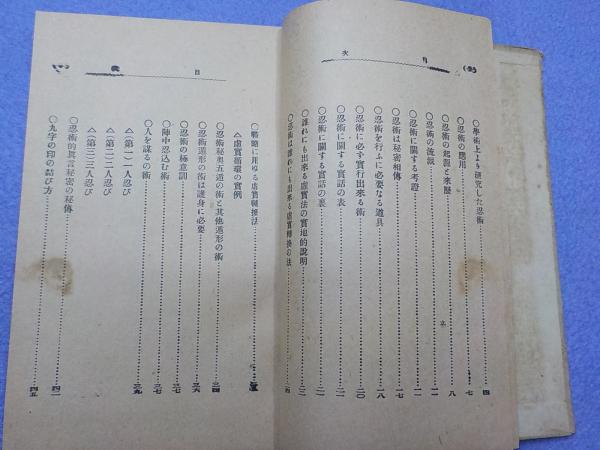 目次
○學術上より研究した忍術……四
○忍術の應用……七
○忍術の起源と來歷……八
○忍術の流派……一一
○忍術に關する考證……一一
○忍術は秘密相傳……一七
○忍術を行ふに必要なる道具……一八
○忍術に必ず實行出來る術……二〇
○忍術に關する實話の表……二一
○忍術に關する實話の裏……二一
○誰れにも出來る虛實法の實地的說明……二二
○忍術は誰れにも出來る虛實轉換の法
目次
○戰略に用ゆる虛實轉換法
△虛實循環の實例
○忍術秘奧五道の術と其他遁形の術……三四
○忍術遁形の術は護身に必要……三六
○忍術の極意訓……三七
○陣中忍込む術……三七
○人を謀るの術……三九
△(第一)一人忍び
△(第二)二人忍び
△(第三)三人忍び
○忍術的眞言秘密の秘傳……四二
○九字の印の結び方……四五